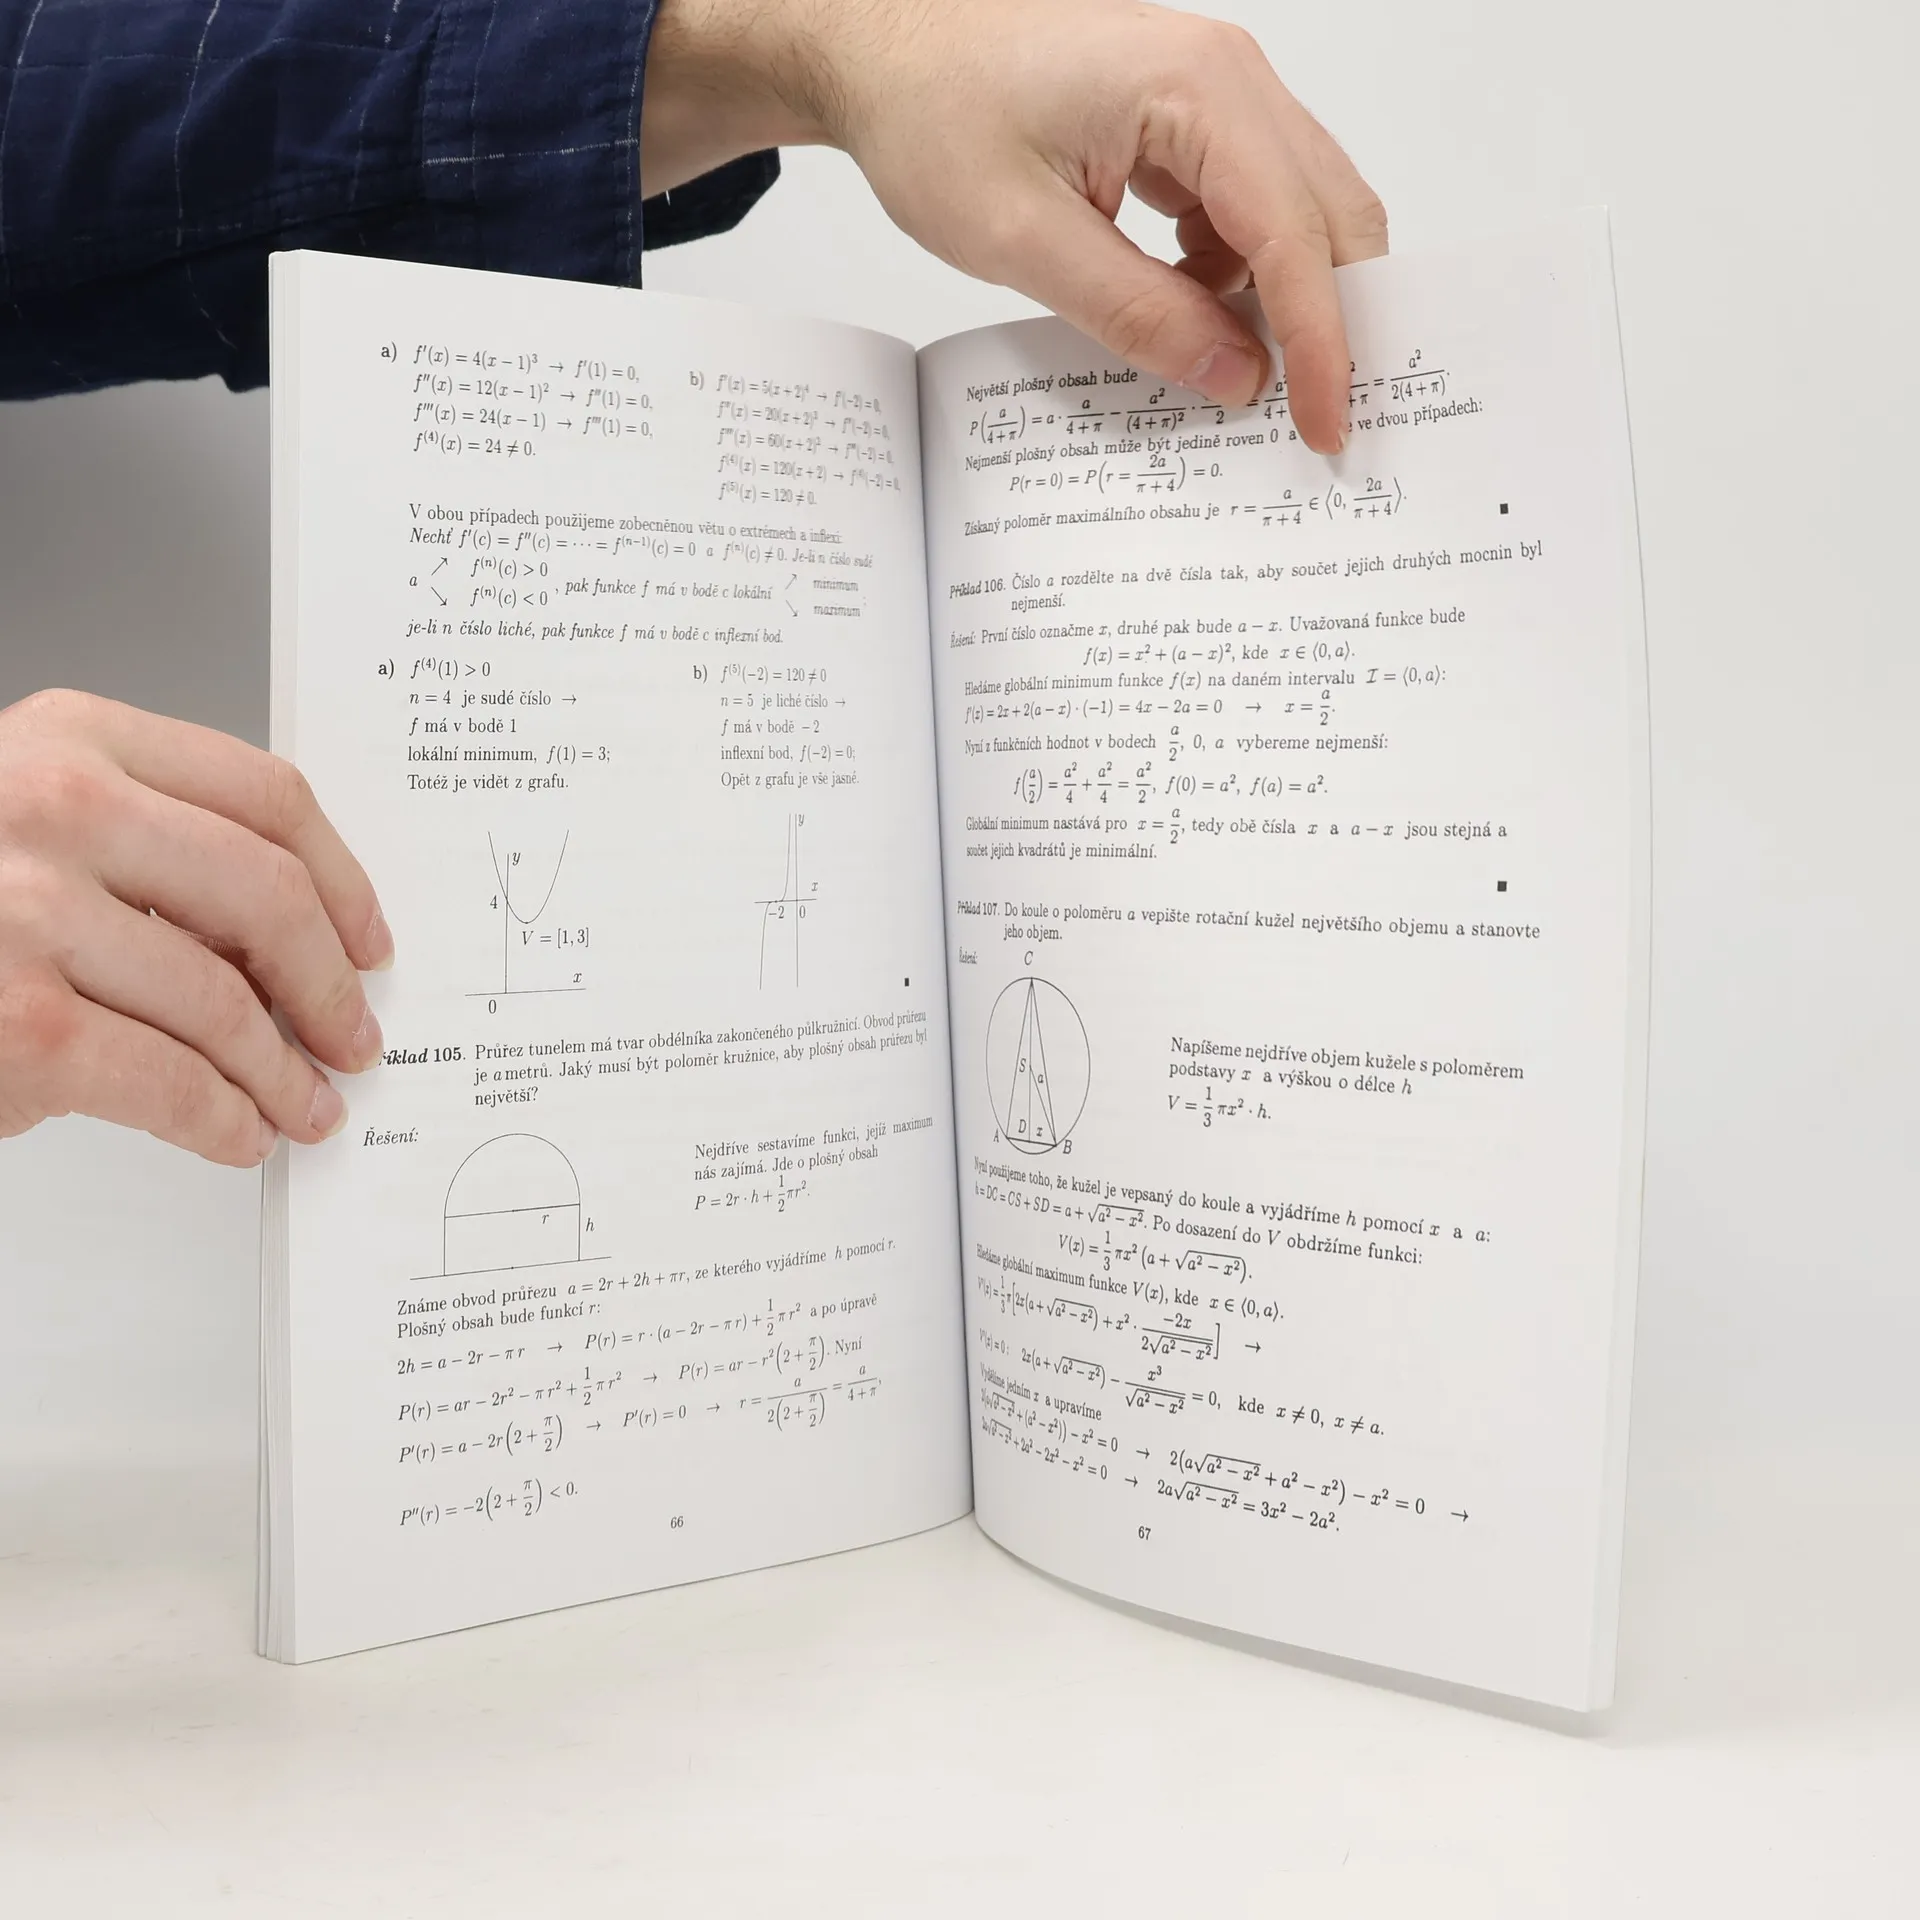 a) f'(x) = 4(x − 1)³ → f'(1) = 0,
f''(x) = 12(x − 1)² → f''(1) = 0,
f'''(x) = 24(x − 1) → f'''(1) = 0,
f⁽⁴⁾(x) = 24 ≠ 0.
b) f'(x) = 5(x + 2)⁴ → f'(−2) = 0,
f''(x) = 20(x + 2)³ → f''(−2) = 0,
f'''(x) = 60(x + 2)² → f'''(−2) = 0,
f⁽⁴⁾(x) = 120(x + 2) → f⁽⁴⁾(−2) = 0,
f⁽⁵⁾(x) = 120 ≠ 0.
V obou případech použijeme zobecněnou větu o extrémech a inflexi:
Nechť f'(c) = f''(c) = ⋯ = f⁽ⁿ⁻¹⁾(c) = 0 a f⁽ⁿ⁾(c) ≠ 0. Je-li n číslo sudé
a ↗ f⁽ⁿ⁾(c) > 0
↘ f⁽ⁿ⁾(c) < 0 , pak funkce f má v bodě c lokální ↗ minimum
↘ maximum ;
je-li n číslo liché, pak funkce f má v bodě c inflexní bod.
a) f⁽⁴⁾(1) > 0
n = 4 je sudé číslo →
f má v bodě 1
lokální minimum, f(1) = 3;
Totéž je vidět z grafu.
b) f⁽⁵⁾(−2) = 120 ≠ 0
n = 5 je liché číslo →
f má v bodě −2
inflexní bod, f(−2) = 0;
Opět z grafu je vše jasné.
y
4
V = [1, 3]
x
0
y
x
−2 0
říklad 105. Průřez tunelem má tvar obdélníka zakončeného půlkružnicí. Obvod průřezu
je a metrů. Jaký musí být poloměr kružnice, aby plošný obsah průřezu byl
největší?
Řešení:
r
h
Nejdříve sestavíme funkci, jejíž maximum
nás zajímá. Jde o plošný obsah
P = 2r · h + 1/2 πr².
Známe obvod průřezu a = 2r + 2h + πr, ze kterého vyjádříme h pomocí r.
Plošný obsah bude funkcí r:
2h = a − 2r − πr → P(r) = r · (a − 2r − πr) + 1/2 πr² a po úpravě
P(r) = ar − 2r² − πr² + 1/2 πr² → P(r) = ar − r²(2 + π/2). Nyní
P'(r) = a − 2r(2 + π/2) → P'(r) = 0 → r = a/(2(2 + π/2)) = a/(4 + π),
P''(r) = −2(2 + π/2) < 0.
66
Největší plošný obsah bude
P(a/(4 + π)) = a · a/(4 + π) − a²/(4 + π)² · 2 = a²/(2(4 + π)).
Nejmenší plošný obsah může být jedině roven 0 a ve dvou případech:
P(r = 0) = P(r = 2a/(π + 4)) = 0.
Získaný poloměr maximálního obsahu je r = a/(π + 4) ∈ ⟨0, 2a/(π + 4)⟩.
■
Příklad 106. Číslo a rozdělte na dvě čísla tak, aby součet jejich druhých mocnin byl
nejmenší.
Řešení: První číslo označme x, druhé pak bude a − x. Uvažovaná funkce bude
f(x) = x² + (a − x)², kde x ∈ ⟨0, a⟩.
Hledáme globální minimum funkce f(x) na daném intervalu I = ⟨0, a⟩:
f'(x) = 2x + 2(a − x) · (−1) = 4x − 2a = 0 → x = a/2.
Nyní z funkčních hodnot v bodech a/2, 0, a vybereme nejmenší:
f(a/2) = a²/4 + a²/4 = a²/2, f(0) = a², f(a) = a².
Globální minimum nastává pro x = a/2, tedy obě čísla x a a − x jsou stejná a
součet jejich kvadrátů je minimální.
■
Příklad 107. Do koule o poloměru a vepište rotační kužel největšího objemu a stanovte
jeho objem.
Řešení:
C
S
a
A D x B
Napíšeme nejdříve objem kužele s poloměrem
podstavy x a výškou o délce h
V = 1/3 πx² · h.
Nyní použijeme toho, že kužel je vepsaný do koule a vyjádříme h pomocí x a a:
h = DC = CS + SD = a + √(a² − x²). Po dosazení do V obdržíme funkci:
V(x) = 1/3 πx² (a + √(a² − x²)).
Hledáme globální maximum funkce V(x), kde x ∈ ⟨0, a⟩.
V'(x) = 1/3 π[2x(a + √(a² − x²)) + x² · −2x/(2√(a² − x²))] →
V'(x) = 0 : 2x(a + √(a² − x²)) − x³/√(a² − x²) = 0, kde x ≠ 0, x ≠ a.
Vydělíme jedním x a upravíme
2(a√(a² − x²) + (a² − x²)) − x² = 0 → 2(a√(a² − x²) + a² − x²) − x² = 0 →
2a√(a² − x²) + 2a² − 2x² − x² = 0 → 2a√(a² − x²) = 3x² − 2a².
67